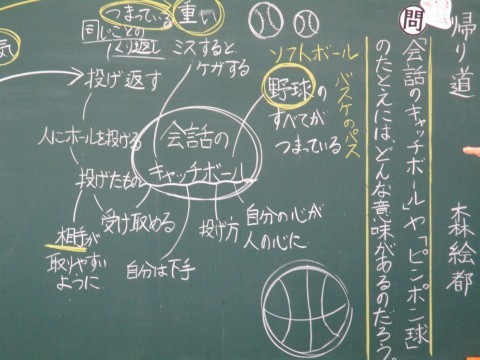 帰り道
森絵都
問
「会話のキャッチボール」や「ピンポン球」
のたとえには、どんな意味があるのだろう。
ソフトボール
バスケのパス
野球の
すべてが
つまっている
重い
ミスすると
ケガする
つまっている
同じことの
くり返し
投げ返す
会話の
キャッチボール
人にボールを投げる
投げたもの
相手が
取りやすい
ように
受け取める
自分は下手
投げ方
自分の心が
人の心に
気